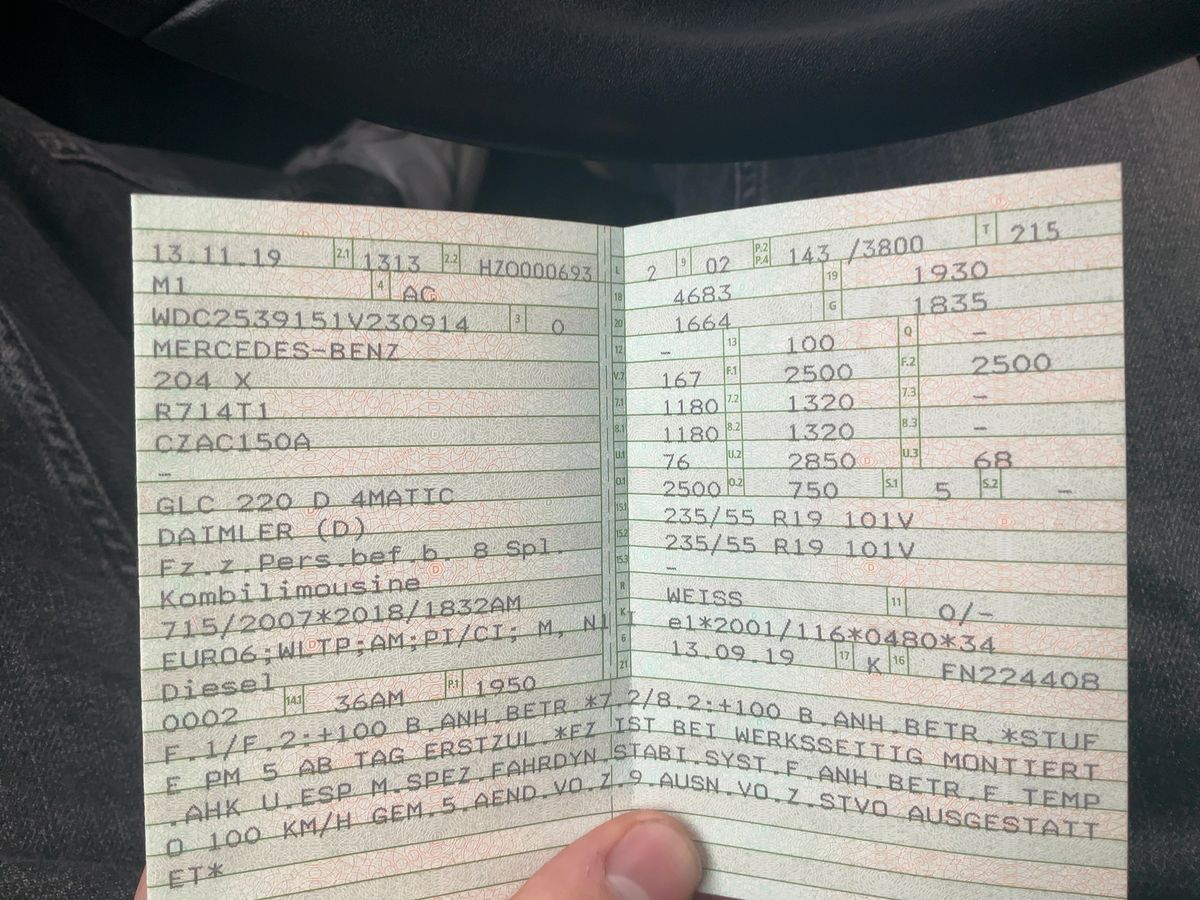 13.11.19 2.1 1313 2.2 HZ0000693
M1 4 AC
WDC2539151V230914 3 0
MERCEDES-BENZ
204 X
R714T1
CZAC150A
–
GLC 220 D 4MATIC
DAIMLER (D)
Fz.z.Pers.bef.b. 8 Spl.
Kombilimousine
715/2007*2018/1832AM
EURO6;WLTP;AM;PI/CI; M, N1 I
Diesel
0002 14.1 36AM P.1 1950
L 2 9 02 P.2 P.4 143 /3800 T 215
18 4683 19 1930
20 1664 G 1835
12 – 13 100 Q –
V.7 167 F.1 2500 F.2 2500
7.1 1180 7.2 1320 7.3 –
8.1 1180 8.2 1320 8.3 –
U.1 76 U.2 2850 U.3 68
O.1 2500 O.2 750 S.1 5 S.2 –
15.1 235/55 R19 101V
15.2 235/55 R19 101V
15.3 –
R WEISS 11 0/–
K e1*2001/116*0480*34
6 13.09.19 17 K 16 FN224408
21
F.1/F.2:+100 B.ANH.BETR.*7.2/8.2:+100 B.ANH.BETR.*STUF
E PM 5 AB TAG ERSTZUL.*FZ IST BEI WERKSSEITIG MONTIERT
.AHK U.ESP M.SPEZ.FAHRDYN.STABI.SYST.F.ANH.BETR.F.TEMP
O 100 KM/H GEM.5.AEND.VO.Z.9 AUSN.VO.Z.STVO AUSGESTATT
ET*